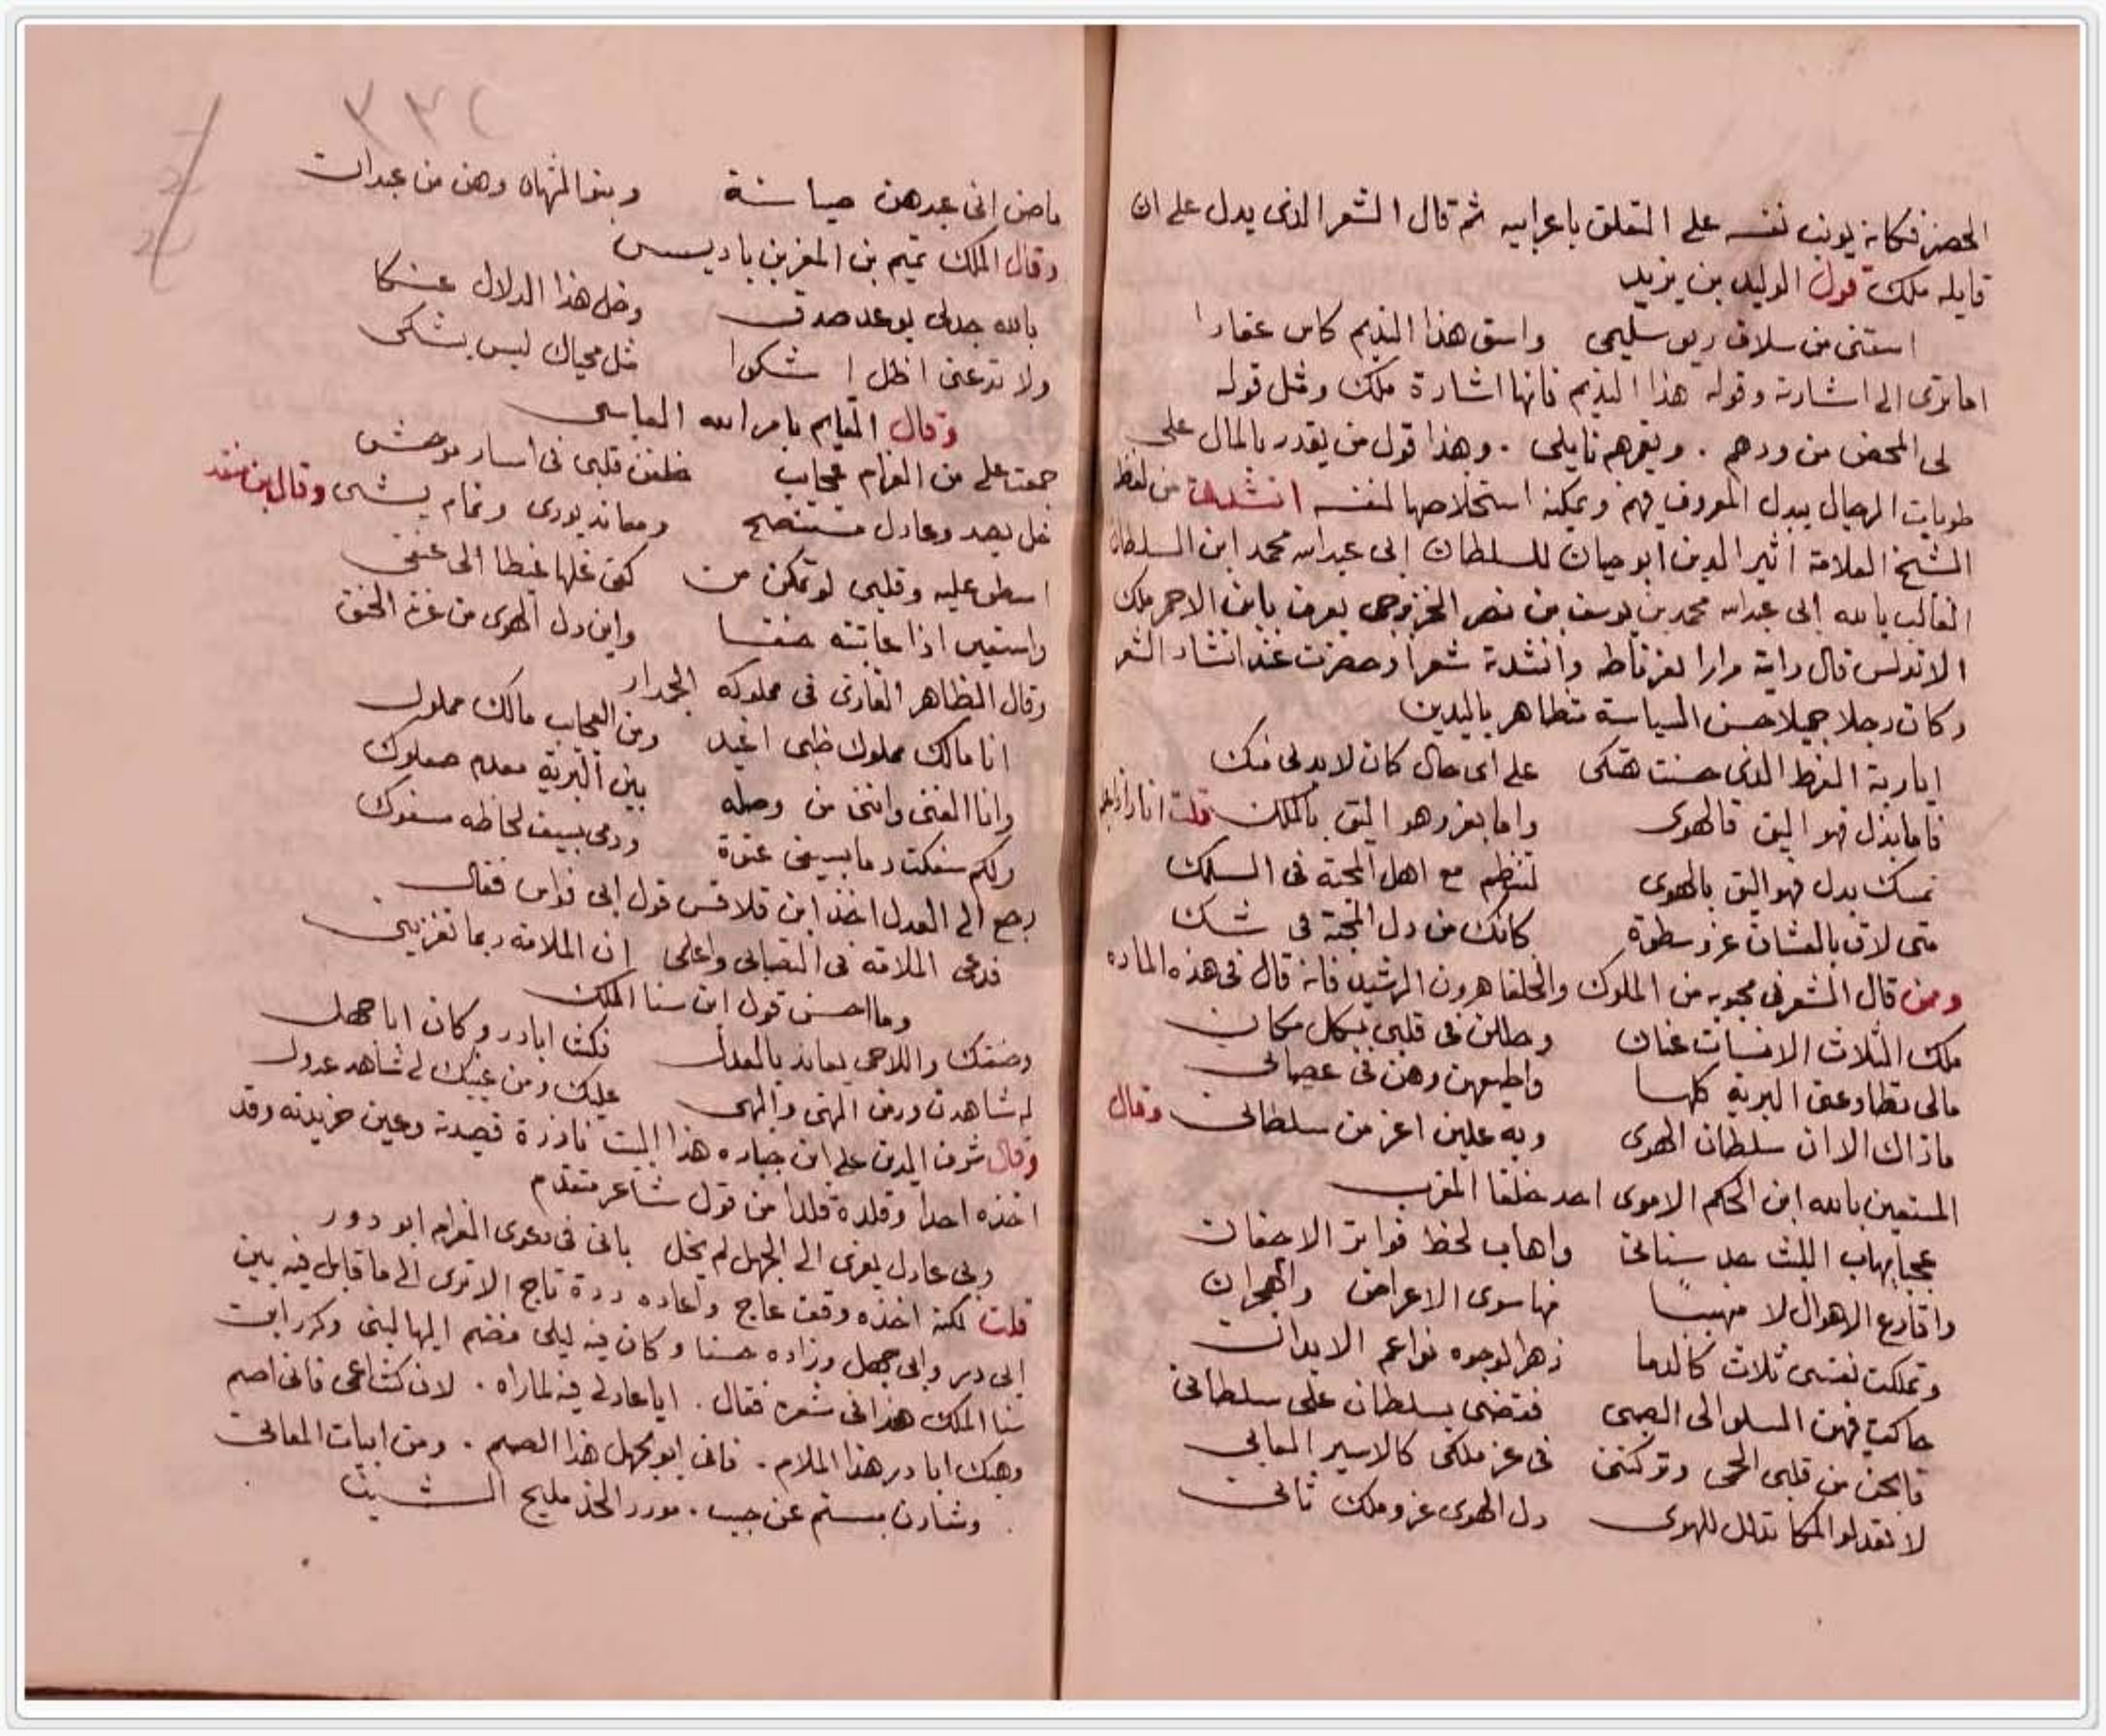 الحصر فكانه يونب نفسه على التعلق باعرابيه ثم قال الشعر الذى يدل على ان
قايله ملك قول الوليد بن يزيد
اسقنى من سلاف ريق سليمى واسق هذا النديم كاس عقارا
اما ترى الى اشارته وقوله هذا النديم فانها اشارة ملك ومثل قوله
لى المحض من ودهم . ويغرهم نايلى . وهذا قول من يقدر بالمال على
طويات الرجال يبدل المعروف فهم ويمكنه استخلاصها لنفسه انشدنا من لفظه
الشيخ العلامة اثير الدين ابو حيان للسلطان ابى عبد الله محمد ابن السلطان
الغالب بالله ابى عبد الله محمد بن يوسف بن نصر الخزرجى يعرف بابن الاحمر ملك
الاندلس قال راية مرارا بغرناطه وانشدة شعرا وحضرت عند انشاد الشعر
وكان رجلا جميلا حسن السياسة متظاهر بالدين
ايا ربة القرط الذى حسنت هتكى على اى حال كان لا بد لى منك
فاما بذل فهو اليق فالهوى واما بعز وهو اليق بالملك قلت انا
تمسك بدل فهو اليق بالهوى لتنظم مع اهل المحبة فى السلك
متى لاق بالعشاق عز وسطوة كانك من دل المحبة فى شك
ومن قال الشعر فى محبوبه من الملوك والخلفا هرون الرشيد فانه قال فى هذه الماده
ملك الثلاث الانسات عنان وحللن فى قلبى بكل مكان
مالى تطاوعنى البرية كلها واطيعهن وهن فى عصيانى
ماذاك الا ان سلطان الهوى وبه علين اعز من سلطانى وقال
المستعين بالله ابن الحكم الاموى احد خلفا المغرب
عجبا يهاب الليث حد سنانى واهاب لحظ فواتر الاجفان
واقارع الاهوال لا متهيبا منها سوى الاعراض والهجران
وتملكت نفسى ثلاث كالدما زهر الوجوه نواعم الابدان
حاكمت فهن السلو الى الصبى فقضى بسلطان على سلطانى
فابحن من قلبى الحمى وتركننى فى عز ملكى كالاسير العانى
لا تعدلوا ملكا تذلل للهوى دل الهوى عز وملك ثانى
٣٣٢
ماضر انى عبدهن صبابة وبنو الزمان وهن من عبدان
وقال الملك تميم بن المعز بن باديس
بالله جدلى بوعد صدق وخل هذا الدلال عنكا
ولا تدعنى اظل اشكوا مثل محياك ليس يشكى
وقال القايم بامر الله العباسى
جمعت على من الغرام عجايب خلفن قلبى فى اسار موحش
خل يصد وعادل متنصح ومعاند يودى ونمام يشى وقال ابن منقد
اسطو عليه وقلبى لو تمكن من كفى غلها غيظا الى عنقى
واستعير اذا عاتبته حنقا واين دل الهوى من عزة الحنق
وقال الظاهر الغازى فى مملوكه الجدار
انا مالك مملوك ظبى اغيد ومن العجايب مالك مملوك
وانا الغنى واننى من وصله بين البرية معدم صعلوك
ولكم سفكت دما بسيفى عنوة ودمى بسيف لحاظه مسفوك
رجع الى العدل اخذ ابن قلاقس قول ابى نواس فقال
فدعى الملامة فى التصابى واعلمى ان الملامة ربما تغرينى
وما احسن قول ابن سنا الملك
وصفتك واللاحى يعاند بالعدل فكنت ابادر وكان ابا جهل
له شاهدن زور من النهى والهى عليك ومن عينيك لى شاهد عدول
وقال شرف الدين على ابن جباره هذا البيت نادرة قصيدته وعين خريدته وقد
اخذه احدا وقلدة قلدا من قول شاعر متقدم
وبى عادل يعزى الى الجهل لم يخل بانى فى دعوى الغرام ابو دور
قلت لكنه اخذه وقف عاج واعاده درة تاج الا ترى الى ما قابل فيه بين
ابى در وابى جهل وزاده حسنا وكان فيه ليلى فضم اليها لبنى وكرر ابن
سنا الملك هذا فى شعره فقال . ايا عادلى فيه لما راه . لان كنت اعمى فانى اصم
وهبك ابا در هذا الملام . فانى ابو جهل هذا الصمم . ومن ابيات المعانى
وشادن مبتسم عن حبب . مورد الخد مليح الشنب